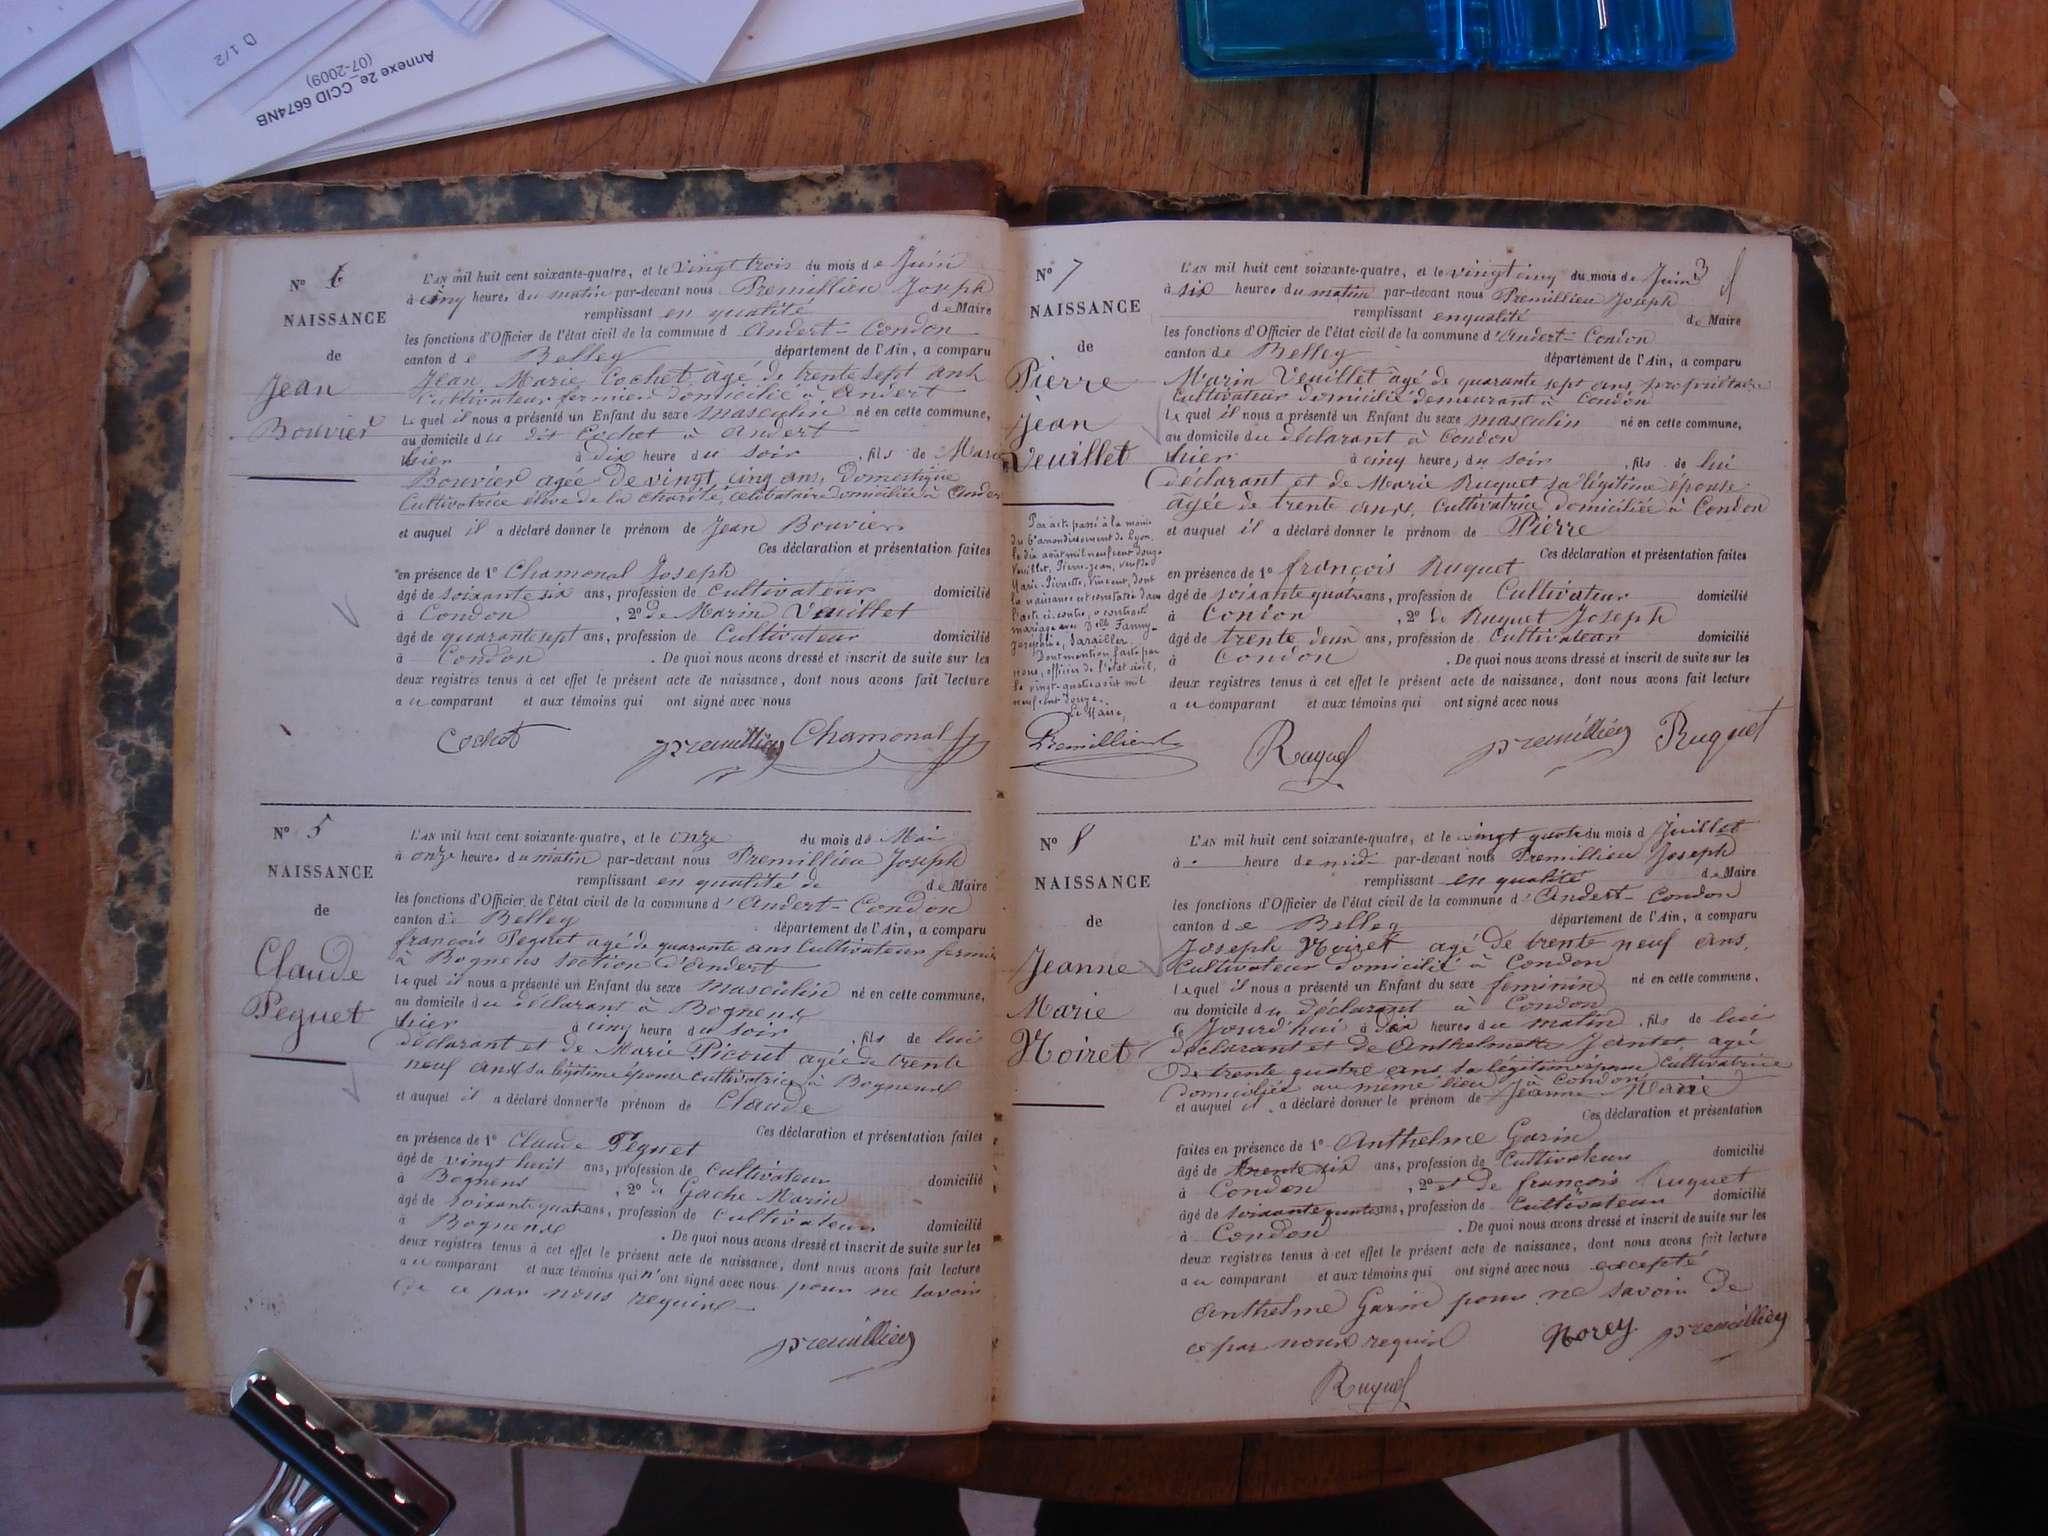 Annexe 2e_CCID 6674NB
(07-2009)
D 1/2
N° 6
NAISSANCE
de
Jean
Bouvier
L'AN mil huit cent soixante-quatre, et le vingt trois du mois de Juin
à cinq heures du matin par-devant nous Premillieu Joseph
remplissant en qualité de Maire
les fonctions d'Officier de l'état civil de la commune d'Andert-Condon
canton de Belley département de l'Ain, a comparu
Jean Marie Cochet âgé de trente sept ans
Cultivateur fermier domicilié à Andert
Lequel il nous a présenté un Enfant du sexe masculin né en cette commune,
au domicile du dit Cochet à Andert
hier à dix heure du soir, fils de Marie
Bouvier agée de vingt cinq ans, Domestique
Cultivatrice élève de la charité, célibataire domiciliée à Andert
et auquel il a déclaré donner le prénom de Jean Bouvier
Ces déclaration et présentation faites
en présence de 1° Chamonal Joseph
âgé de soixante six ans, profession de Cultivateur domicilié
à Condon, 2° de Marin Veuillet
âgé de quarante sept ans, profession de Cultivateur domicilié
à Condon. De quoi nous avons dressé et inscrit de suite sur les
deux registres tenus à cet effet le présent acte de naissance, dont nous avons fait lecture
au comparant et aux témoins qui ont signé avec nous
Cochet premillieu Chamonal
N° 5
NAISSANCE
de
Claude
Peguet
L'AN mil huit cent soixante-quatre, et le onze du mois de Mai
à onze heures du matin par-devant nous Premillieu Joseph
remplissant en qualité de de Maire
les fonctions d'Officier de l'état civil de la commune d'Andert-Condon
canton de Belley département de l'Ain, a comparu
françois Peguet agé de quarante ans Cultivateur fermier
à Bognens section d'Andert
Lequel il nous a présenté un Enfant du sexe masculin né en cette commune,
au domicile du déclarant à Bognens
hier à cinq heure du soir, fils de lui
déclarant et de Marie Picout agée de trente
neuf ans sa légitime épouse cultivatrice à Bognens
et auquel il a déclaré donner le prénom de Claude
Ces déclaration et présentation faites
en présence de 1° Claude Peguet
âgé de vingt huit ans, profession de Cultivateur
à Bognens, 2° de Gache Marin domicilié
âgé de soixante quatre ans, profession de Cultivateur
à Bognens domicilié
. De quoi nous avons dressé et inscrit de suite sur les
deux registres tenus à cet effet le présent acte de naissance, dont nous avons fait lecture
au comparant et aux témoins qui n'ont signé avec nous pour ne savoir
de ce par nous requis
premillieu
3
N° 7
NAISSANCE
de
Pierre
Jean
Veuillet
Par acte passé à la mairie
du 6e arrondissement de Lyon,
le dix août mil neuf cent douze
Veuillet, Pierre-Jean, veuf de
Marie-Pierrette, Vincent, dont
la naissance est constatée dans
l'acte ci-contre, a contracté
mariage avec Delle Fanny-
Joséphine, Sarailler.
Dont mention faite par
nous, officier de l'état civil,
le vingt-quatre août mil
neuf cent douze.
Le Maire,
Premillieu
L'AN mil huit cent soixante-quatre, et le vingt cinq du mois de Juin
à six heures du matin par-devant nous Premillieu Joseph
remplissant en qualité de Maire
les fonctions d'Officier de l'état civil de la commune d'Andert-Condon
canton de Belley département de l'Ain, a comparu
Marin Veuillet âgé de quarante sept ans, propriétaire
Cultivateur domicilié demeurant à Condon
Lequel il nous a présenté un Enfant du sexe masculin né en cette commune,
au domicile du déclarant à Condon
hier à cinq heures du soir, fils de lui
déclarant et de Marie Ruguet sa légitime épouse
agée de trente ans, Cultivatrice domiciliée à Condon
et auquel il a déclaré donner le prénom de Pierre
Ces déclaration et présentation faites
en présence de 1° françois Ruguet
âgé de soixante quatre ans, profession de Cultivateur domicilié
à Condon, 2° de Ruguet Joseph
âgé de trente deux ans, profession de Cultivateur domicilié
à Condon. De quoi nous avons dressé et inscrit de suite sur les
deux registres tenus à cet effet le présent acte de naissance, dont nous avons fait lecture
au comparant et aux témoins qui ont signé avec nous
Ruguet premillieu Ruguet
N° 8
NAISSANCE
de
Jeanne
Marie
Noiret
L'AN mil huit cent soixante-quatre, et le vingt quatre du mois d Juillet
à heure de midi par-devant nous Premillieu Joseph
remplissant en qualité de Maire
les fonctions d'Officier de l'état civil de la commune d'Andert-Condon
canton de Belley département de l'Ain, a comparu
Joseph Noiret agé de trente neuf ans,
Cultivateur domicilié à Condon
Lequel il nous a présenté un Enfant du sexe feminin né en cette commune,
au domicile du déclarant à Condon
le Jourd'hui à dix heures du matin, fils de lui
déclarant et de Anthelmette Jantet agée
de trente quatre ans sa légitime épouse Cultivatrice
domiciliée au même lieu à Condon
et auquel il a déclaré donner le prénom de Jeanne Marie
Ces déclaration et présentation
faites en présence de 1° Anthelme Garin
âgé de trente six ans, profession de Cultivateur domicilié
à Condon, 2° et de françois Ruguet
âgé de soixante quatre ans, profession de Cultivateur domicilié
à Condon. De quoi nous avons dressé et inscrit de suite sur les
deux registres tenus à cet effet le présent acte de naissance, dont nous avons fait lecture
au comparant et aux témoins qui ont signé avec nous excepté
Anthelme Garin pour ne savoir de
ce par nous requis Norey premillieu
Ruguet